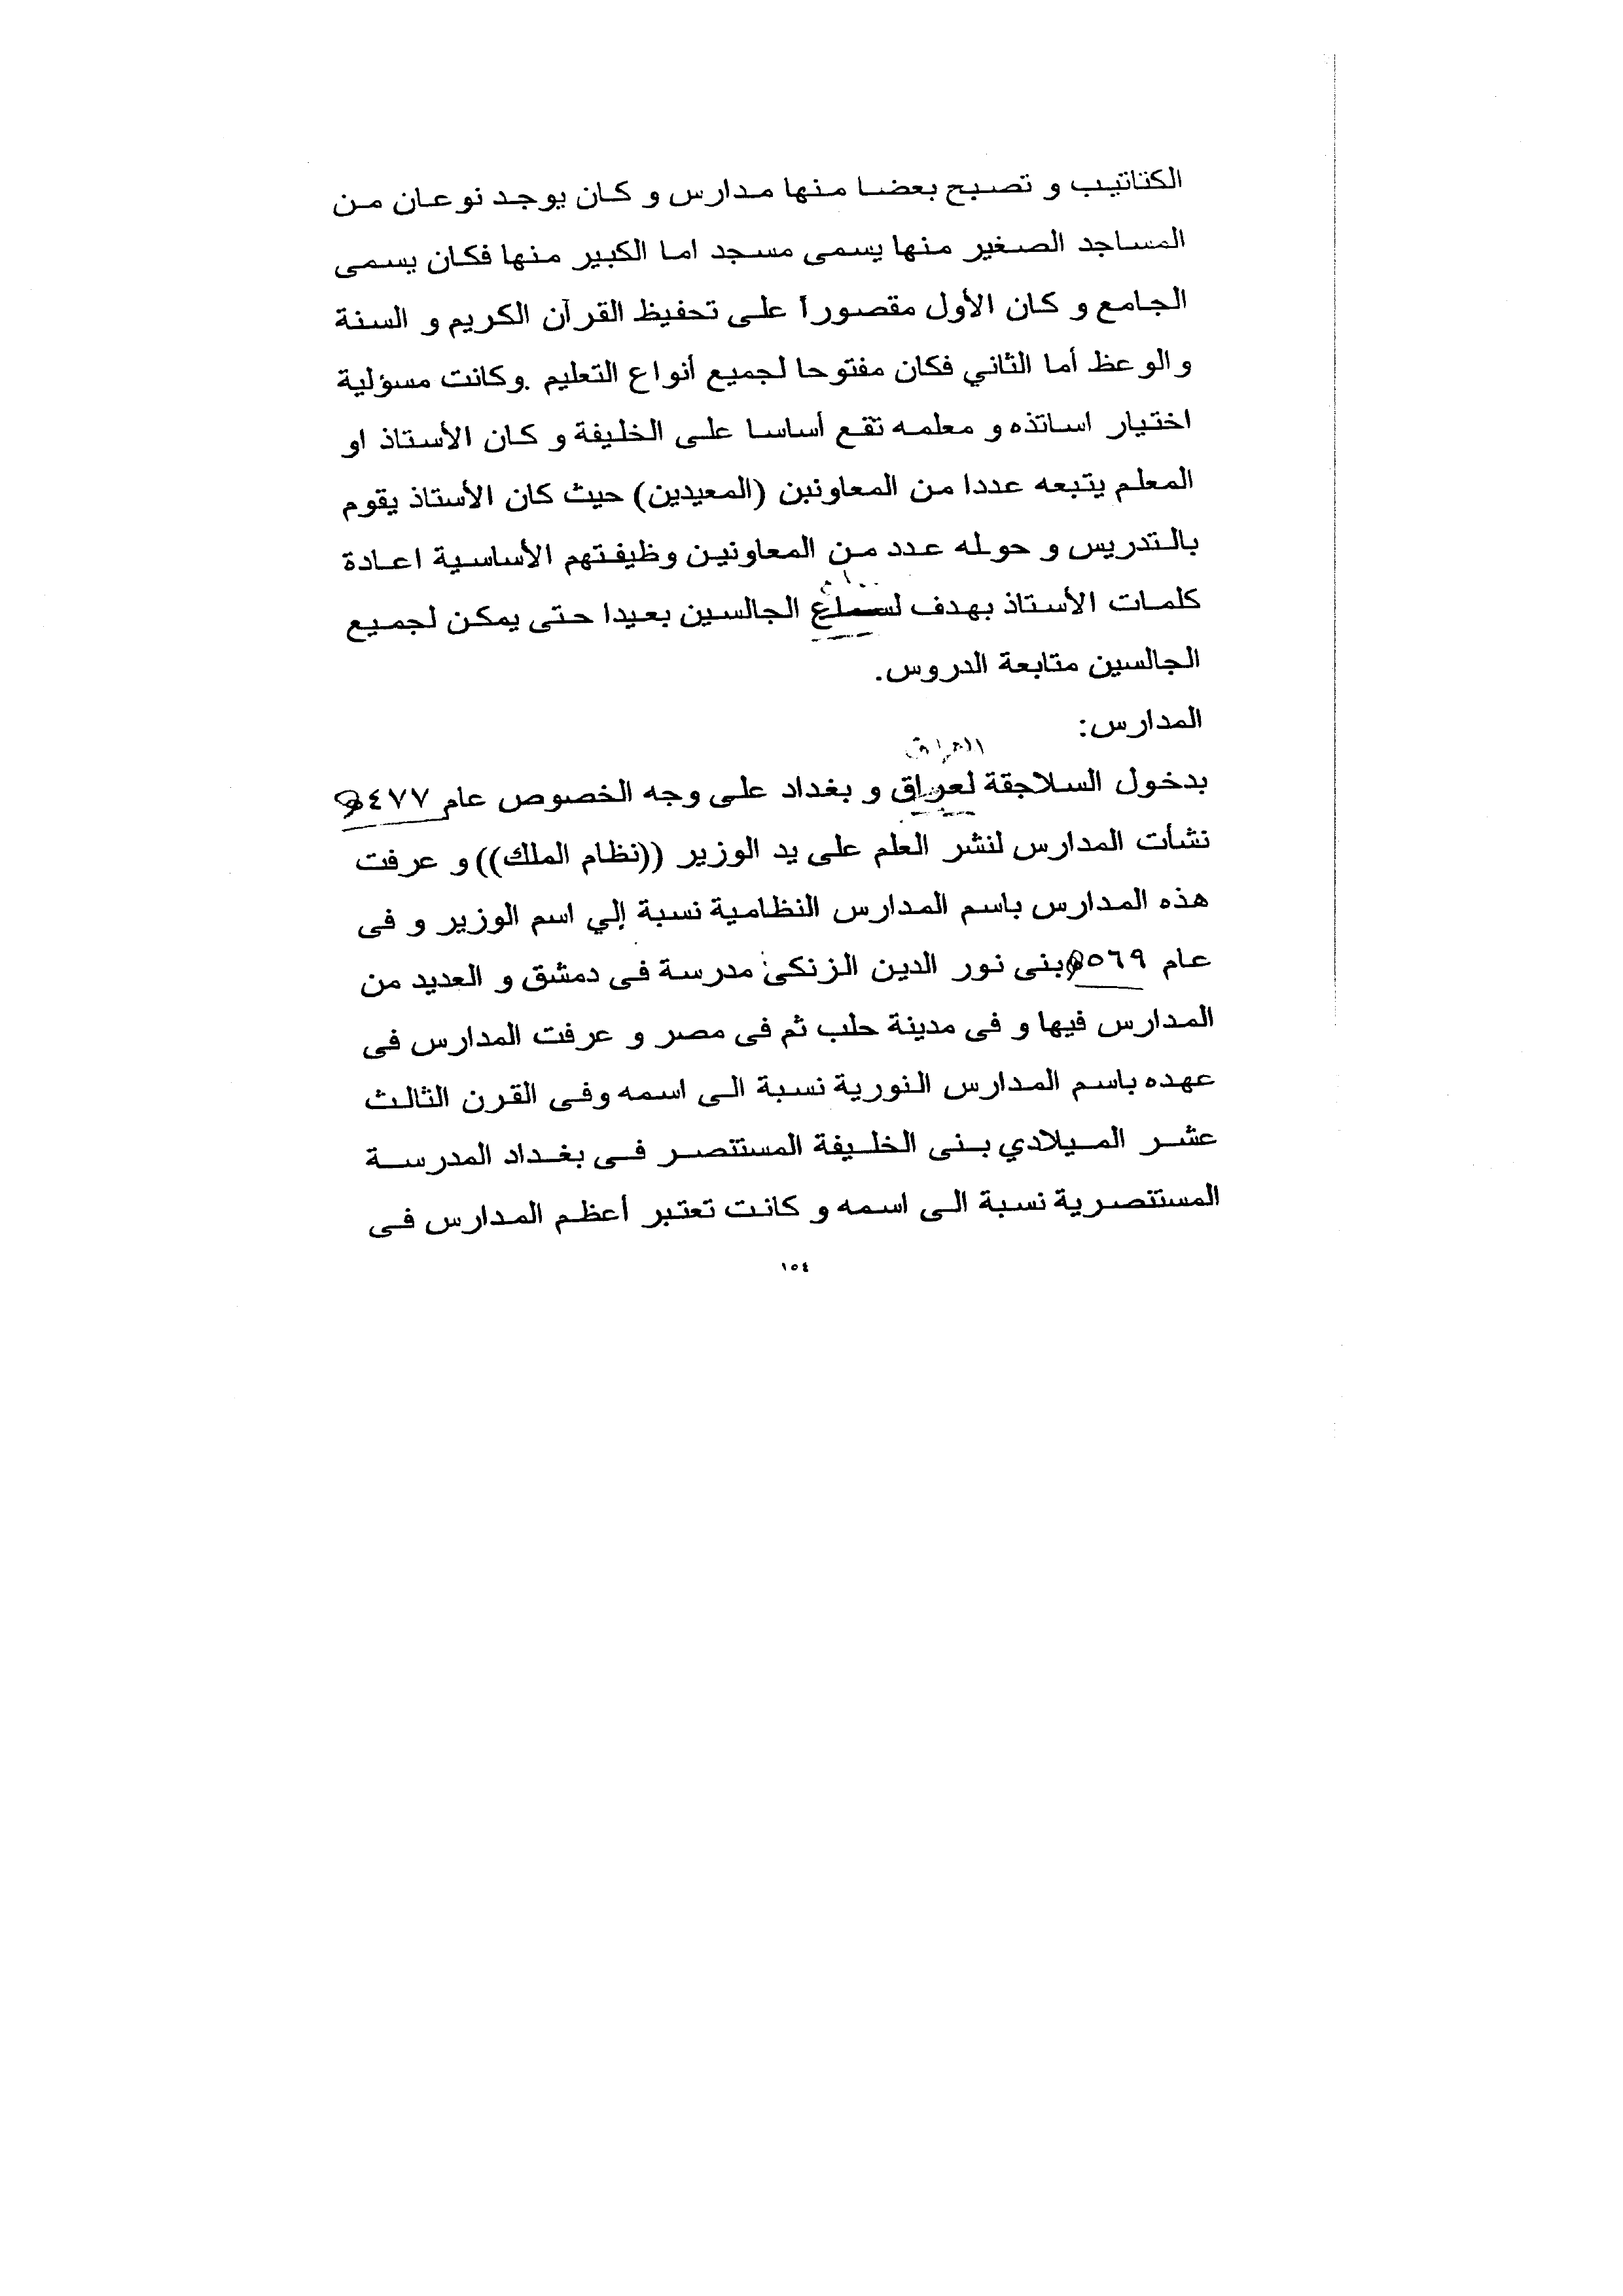 الكتاتيب و تصبح بعضا منها مدارس و كان يوجد نوعان من
المساجد الصغير منها يسمى مسجد اما الكبير منها فكان يسمى
الجامع و كان الأول مقصوراً على تحفيظ القرآن الكريم و السنة
والوعظ أما الثاني فكان مفتوحا لجميع أنواع التعليم .وكانت مسؤلية
اختيار اساتذه و معلمه تقع أساسا على الخليفة و كان الأستاذ او
المعلم يتبعه عددا من المعاونبن (المعيدين) حيث كان الأستاذ يقوم
بالتدريس و حوله عدد من المعاونين وظيفتهم الأساسية اعادة
كلمات الأستاذ بهدف لسماع الجالسين بعيدا حتى يمكن لجميع
الجالسين متابعة الدروس.
المدارس:
العراق
بدخول السلاجقة لعراق و بغداد على وجه الخصوص عام ٤٧٧
نشأت المدارس لنشر العلم على يد الوزير ((نظام الملك)) و عرفت
هذه المدارس باسم المدارس النظامية نسبة إلي اسم الوزير و فى
عام ٥٦٩ بنى نور الدين الزنكى مدرسة فى دمشق و العديد من
المدارس فيها و فى مدينة حلب ثم فى مصر و عرفت المدارس فى
عهده باسم المدارس النورية نسبة الى اسمه وفى القرن الثالث
عشر الميلادي بنى الخليفة المستتصر فى بغداد المدرسة
المستنصرية نسبة الى اسمه و كانت تعتبر أعظم المدارس فى
١٥٤